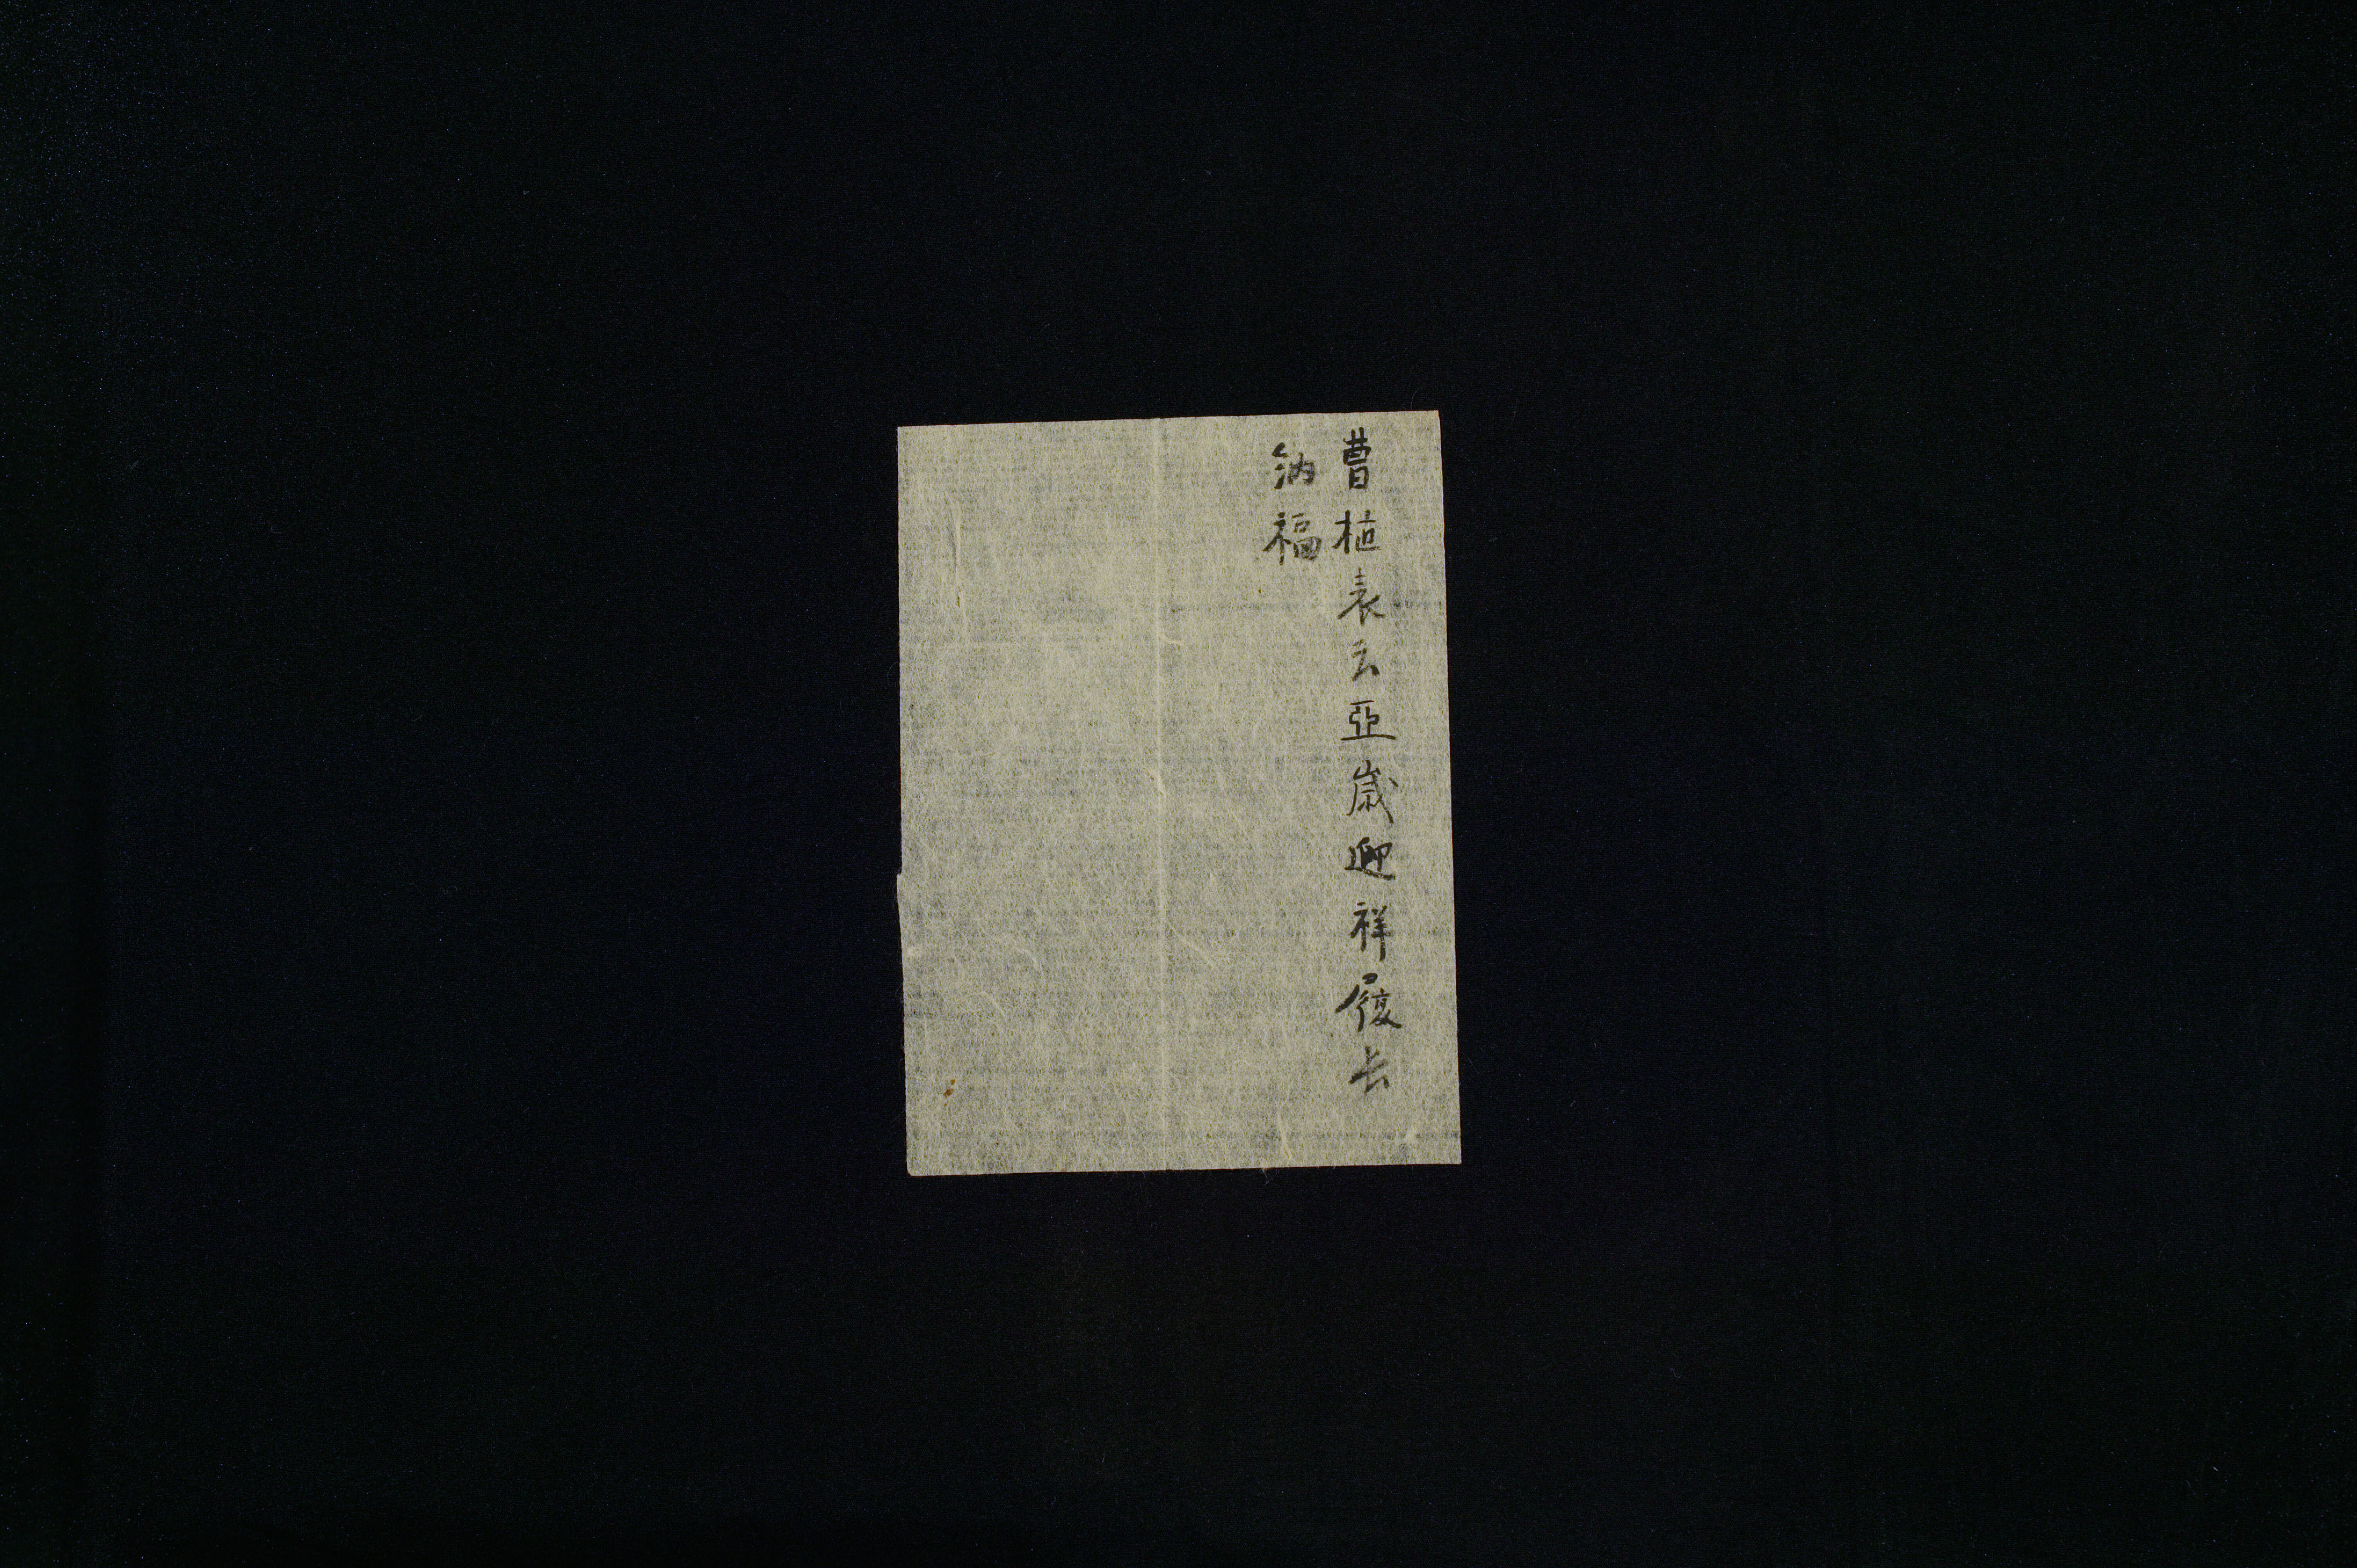 曹植表云亞歲迎祥履長
納福